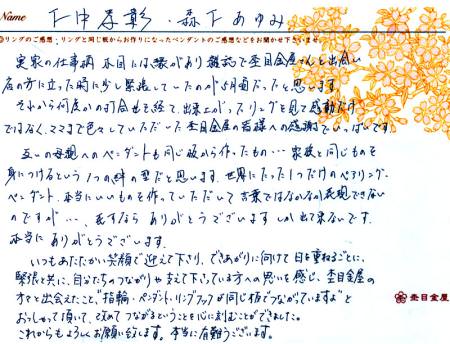 Name 下中孝彰・森下あゆみ
◎リングのご感想・リングと同じ板からお作りになったペンダントのご感想などをお聞かせ下さいませ。
実家の仕事柄 木目には縁があり 雑誌で杢目金屋さんと出会い
店の方に立った時に少し緊張していたのが5月頃だったと思います。
それから何度かの打合せを経て、出来上がったリングを見て感動だけ
ではなく、ここまで色々していただいた杢目金屋の皆様への感謝でいっぱいです
互いの母親へのペンダントも同じ板から作ったもの… 家族と同じものを
身につけるという1つの絆の型だと思います。世界にたった1つだけのペアリング、
ペンダント、本当にいいものを作っていただいて言葉ではなかなか表現できない
のですが…、表すなら ありがとうございます しか出て来ないです。
本当に ありがとうございます。
いつもあたたかい笑顔で迎えて下さり、できあがりに向けて日を重ねるごとに、
緊張と共に、自分たちのつながりや支えて下さっている方への思いを感じ、杢目金屋の
方々と出会えたこと、"指輪・ペンダント・リングファイが同じ板でつながっていますよ"と
おっしゃって頂いて、改めてつながるということを心に刻むことができました。
これからもよろしくお願い致します。本当に有難うございます。
杢目金屋